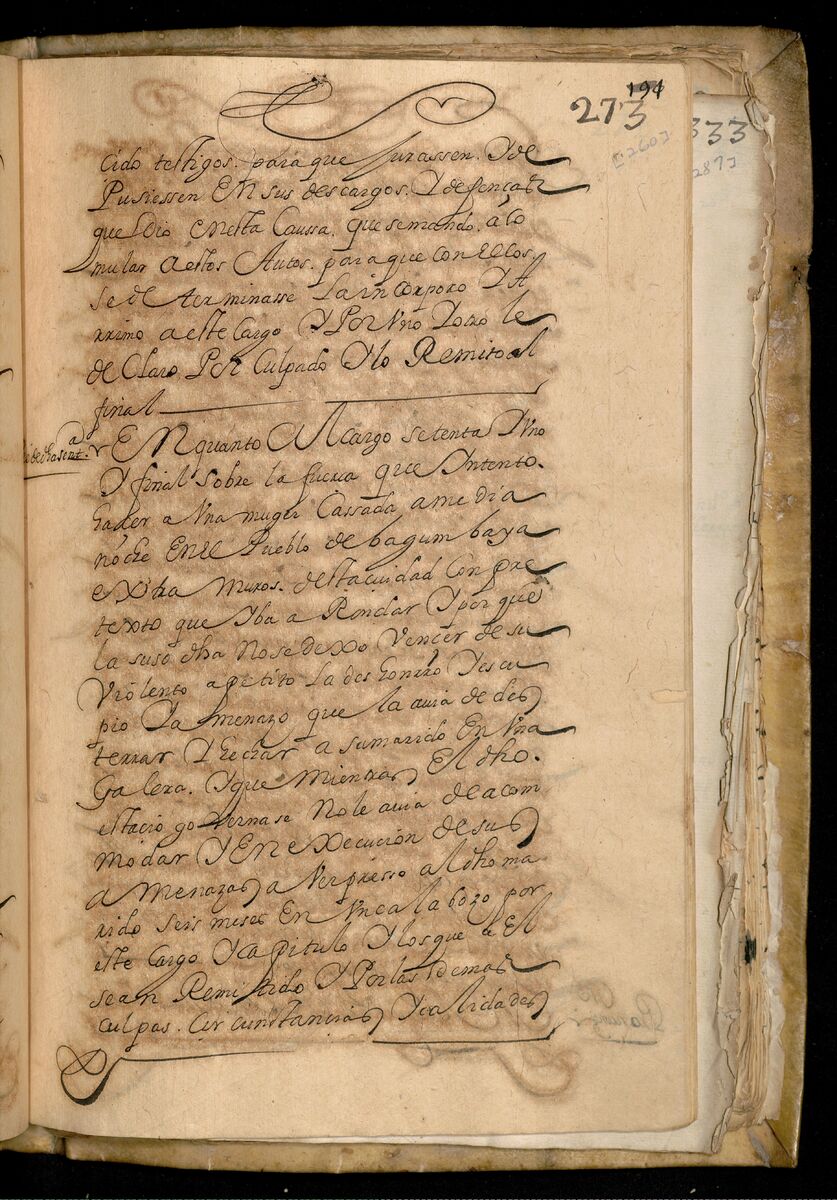 194
273
333
[260]
287]
cido testigos. para que Jurassen. Y de
Pusiessen En sus descargos. Y defenças
que dio Enesta Caussa. que se mando. a Co
mular a estos Autos. para que con Ellos.
se determinasse La incorporo Y A
rrimo a este Cargo Y Por Vno Y otro le
de Claro Por Culpado Y lo Remito al
final
En quanto Al Cargo setenta Y Vno
Y final sobre la fuerza que Yntento.
hacer a Vna muger Cassada a me dia
noche En El Pueblo de bagumbaya
extra muros. desta ciudad con pre
texto que Yba a Rondar Y por que
la suso dha No se dexo Vencer de su
Violento apetito La deshonrro Y escu
pio Y a menazo que la avia de des
terrar Y hechar a su marido En Vna
Galera. Y que mientras El dho.
estacio governase No le avia de acom
modar Y En Execucion de sus
a Menazas a Ver presso al dho ma
rido seis meses En Vn calabozo por
este Cargo Y capitulo Y los que a El
sean Remitido Y Por las demas
culpas. Circunstancias Y calidades